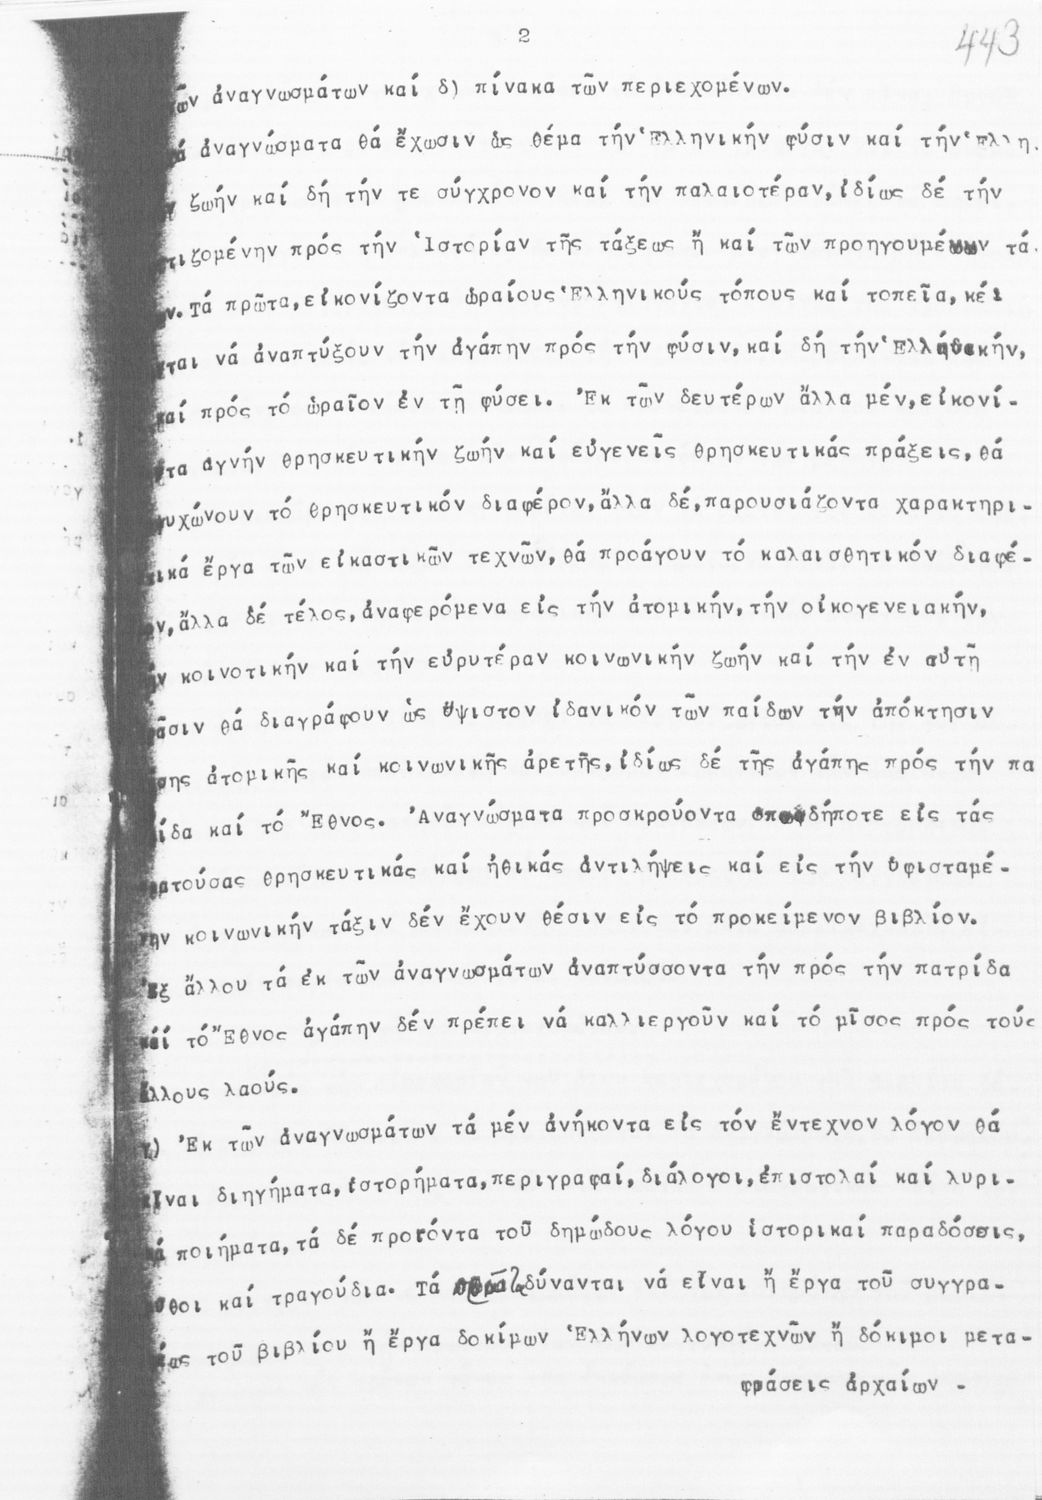 2
443
ῶν ἀναγνωσμάτων καί δ) πίνακα τῶν περιεχομένων.
ά ἀναγνώσματα θά ἔχωσιν ὡς θέμα τήν Ἑλληνικήν φύσιν καί τήν
ζωήν καί δή τήν τε σύγχρονον καί τήν παλαιοτέραν, ἰδίως δέ τήν
τιζομένην πρός τήν Ἱστορίαν τῆς τάξεως ἤ καί τῶν προηγουμένων τά
ν. Τά πρῶτα, εἰκονίζοντα ὡραίους Ἑλληνικούς τόπους καί τοπεῖα,
ται νά ἀναπτύξουν τήν ἀγάπην πρός τήν φύσιν, καί δή τήν Ἑλληνικήν,
καί πρός τό ὡραῖον ἐν τῇ φύσει. Ἐκ τῶν δευτέρων ἄλλα μέν, εἰκονί-
τα ἁγνήν θρησκευτικήν ζωήν καί εὐγενεῖς θρησκευτικάς πράξεις, θά
ψυχώνουν τό θρησκευτικόν διαφέρον, ἄλλα δέ, παρουσιάζοντα χαρακτηρι-
τικά ἔργα τῶν εἰκαστικῶν τεχνῶν, θά προάγουν τό καλαισθητικόν διαφέ-
ον, ἄλλα δέ τέλος, ἀναφερόμενα εἰς τήν ἀτομικήν, τήν οἰκογενειακήν,
ήν κοινοτικήν καί τήν εὐρυτέραν κοινωνικήν ζωήν καί τήν ἐν αὐτῇ
ρᾶσιν θά διαγράφουν ὡς ὕψιστον ἰδανικόν τῶν παίδων τήν ἀπόκτησιν
σης ἀτομικῆς καί κοινωνικῆς ἀρετῆς, ἰδίως δέ τῆς ἀγάπης πρός τήν πα
ίδα καί τό Ἔθνος. Ἀναγνώσματα προσκρούοντα ὁπωσδήποτε εἰς τάς
ρατούσας θρησκευτικάς καί ἠθικάς ἀντιλήψεις καί εἰς τήν ὑφισταμέ-
νην κοινωνικήν τάξιν δέν ἔχουν θέσιν εἰς τό προκείμενον βιβλίον.
Ἐξ ἄλλου τά ἐκ τῶν ἀναγνωσμάτων ἀναπτύσσοντα τήν πρός τήν πατρίδα
καί τό Ἔθνος ἀγάπην δέν πρέπει νά καλλιεργοῦν καί τό μῖσος πρός τούς
ἄλλους λαούς.
) Ἐκ τῶν ἀναγνωσμάτων τά μέν ἀνήκοντα εἰς τόν ἔντεχνον λόγον θά
εἶναι διηγήματα, ἱστορήματα, περιγραφαί, διάλογοι, ἐπιστολαί καί λυρι-
κά ποιήματα, τά δέ προϊόντα τοῦ δημώδους λόγου ἱστορικαί παραδόσεις,
ῦθοι καί τραγούδια. Τά δύνανται νά εἶναι ἤ ἔργα τοῦ συγγρα-
έως τοῦ βιβλίου ἤ ἔργα δοκίμων Ἑλλήνων λογοτεχνῶν ἤ δόκιμοι μετα-
φράσεις ἀρχαίων -